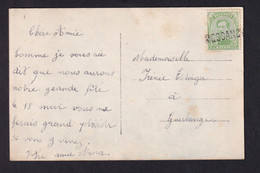 Chère Amie
Comme je vous ai
dit que nous aurons
notre grande fête
le 18 mai vous me
ferais grand plaisir
si vous y venez
Votre amie
Mademoiselle
Irène
à